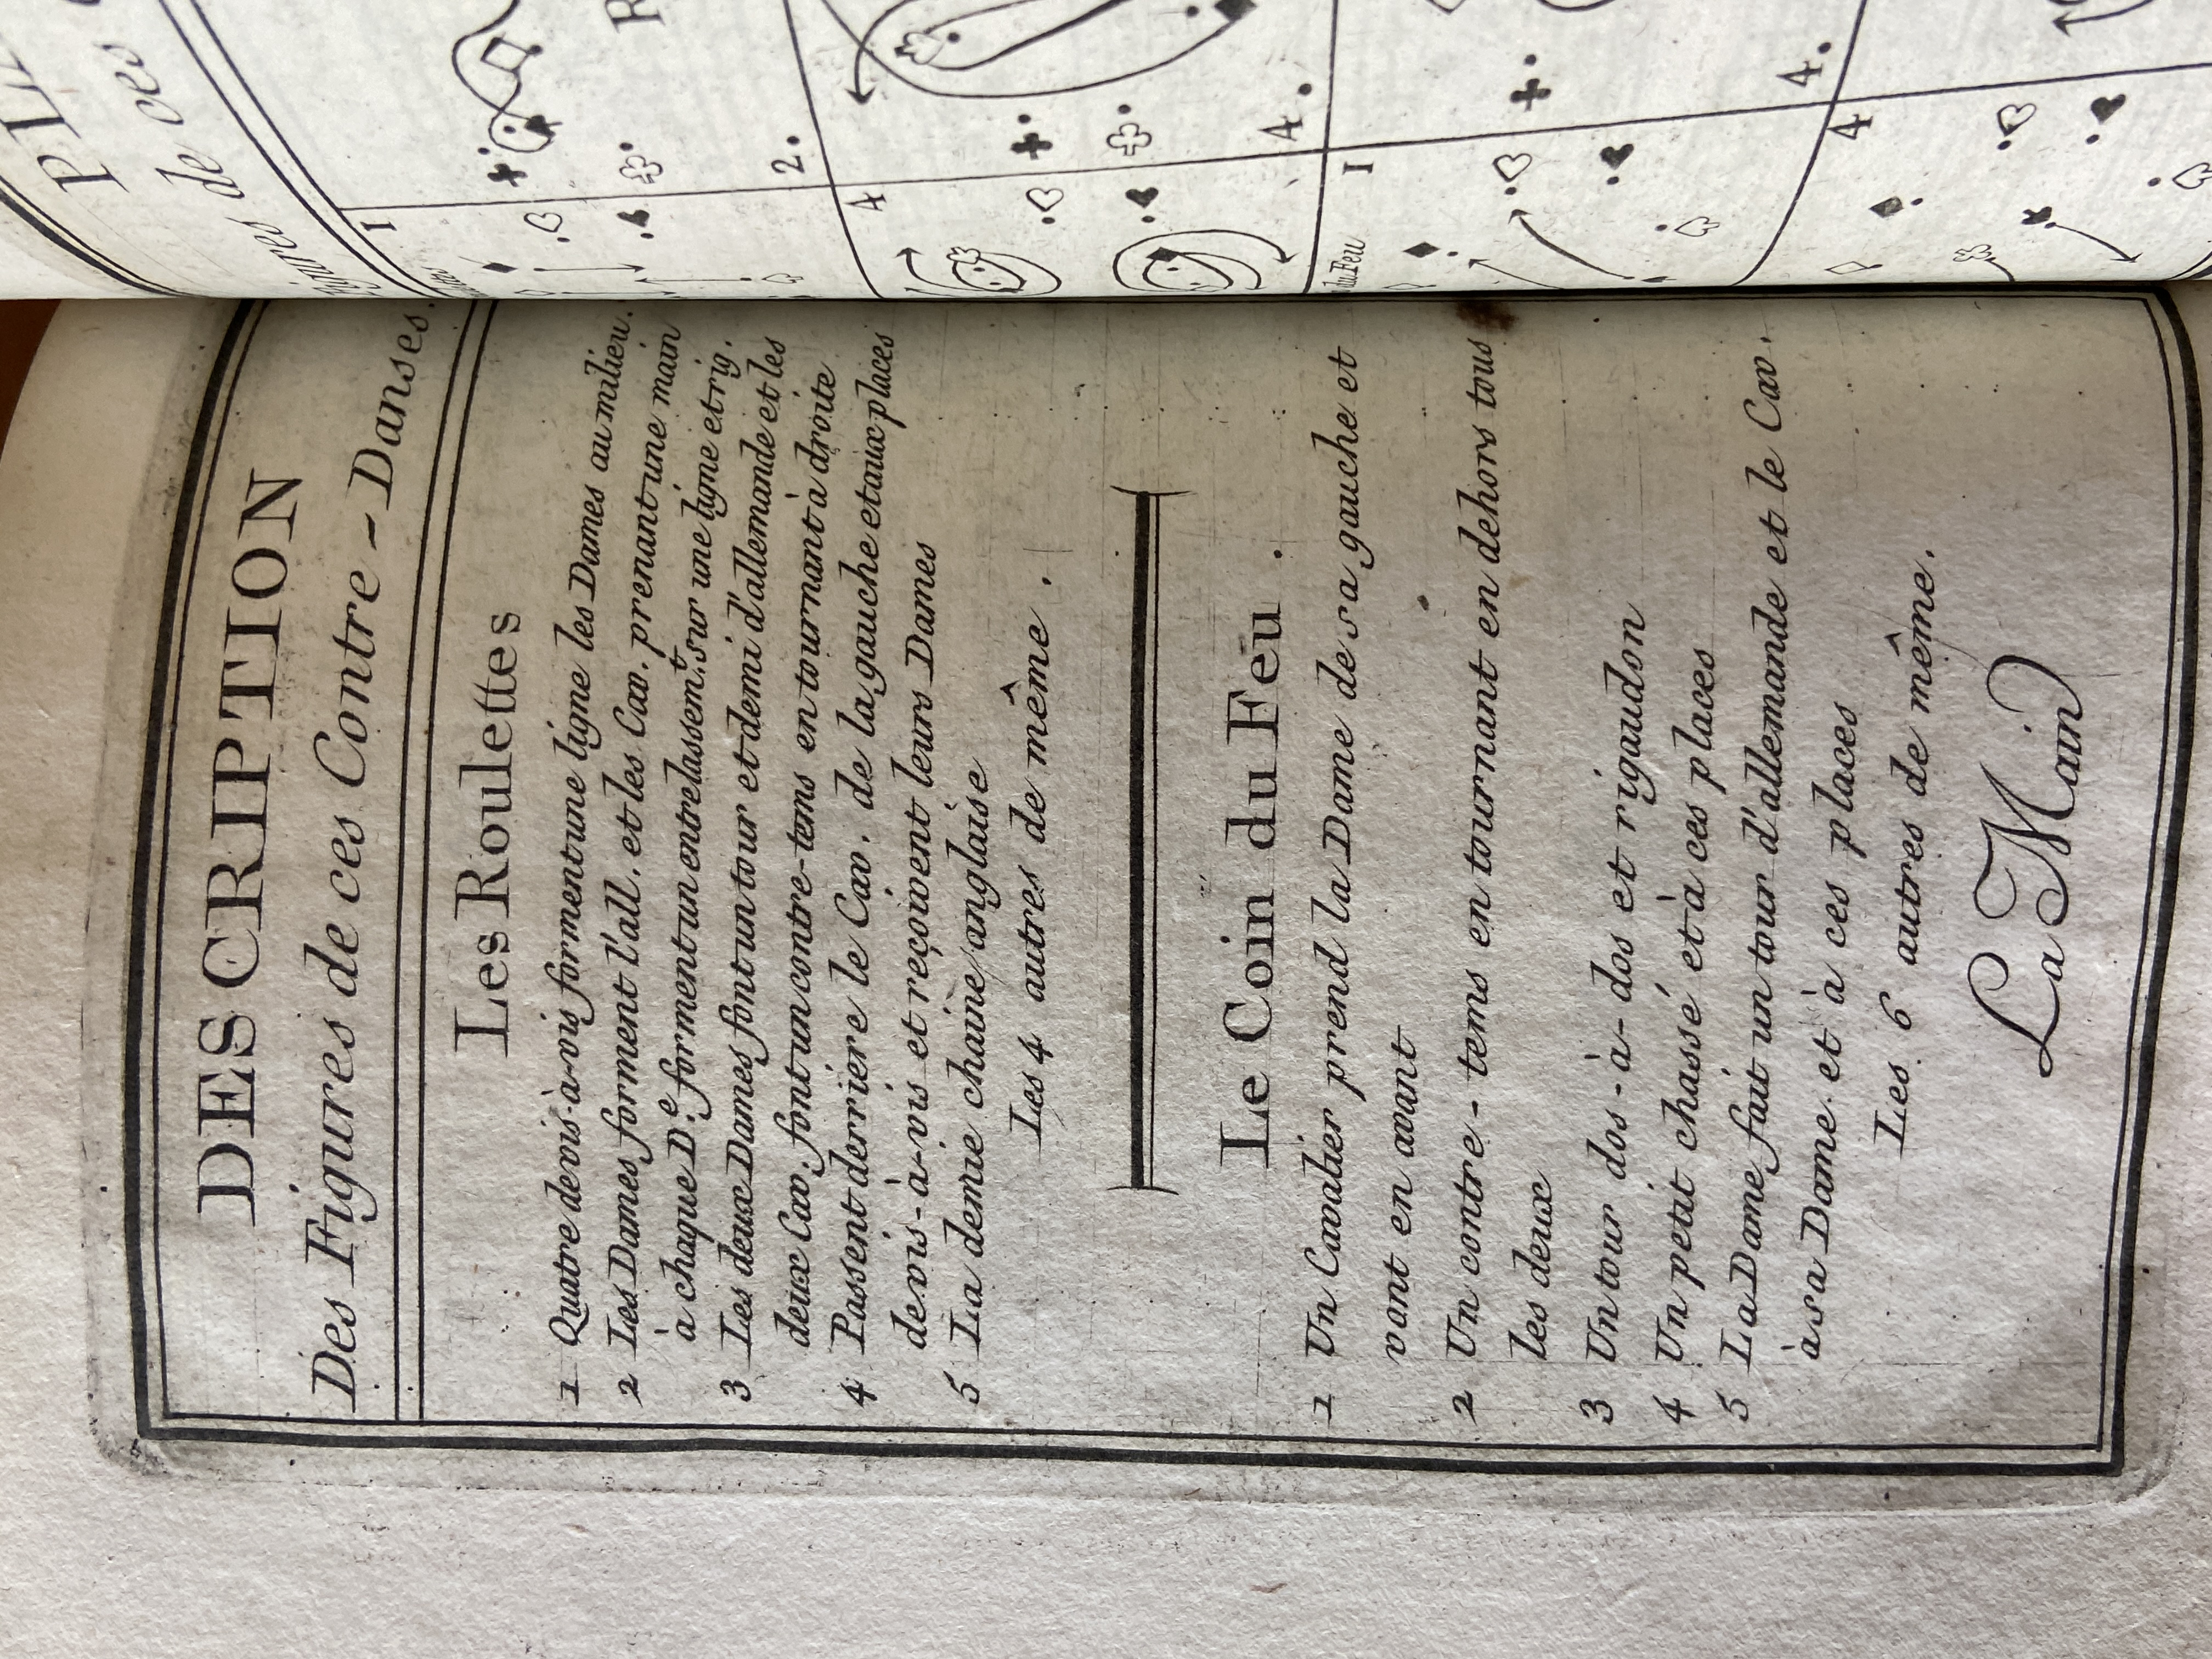 DESCRIPTION
Des Figures de ces Contre-Danses.
Les Roulettes
1 Quatre de vis-à-vis forment une ligne les Dames au milieu.
2 Les Dames forment l'all. et les Cav. prenant une main
à chaque D.e forment un entrelassem.t sur une ligne et rig.
3 Les deux Dames font un tour et demi d'allemande et les
deux Cav. font un contre-tems en tournant à droite
4 Passent derrière le Cav. de la gauche et aux places
de vis-à-vis et reçoivent leurs Dames
5 La demie chaine anglaise
Les 4 autres de même.
Le Coin du Feu.
1 Un Cavalier prend la Dame de sa gauche et
vont en avant
2 Un contre-tems en tournant en dehors tous
les deux
3 Un tour dos-à-dos et rigaudon
4 Un petit chassé et à ces places
5 La Dame fait un tour d'allemande et le Cav.
à sa Dame et à ces places
Les 6 autres de même.
La Main
de ces
1
2.
4
4.
du Feu
1
4.
4